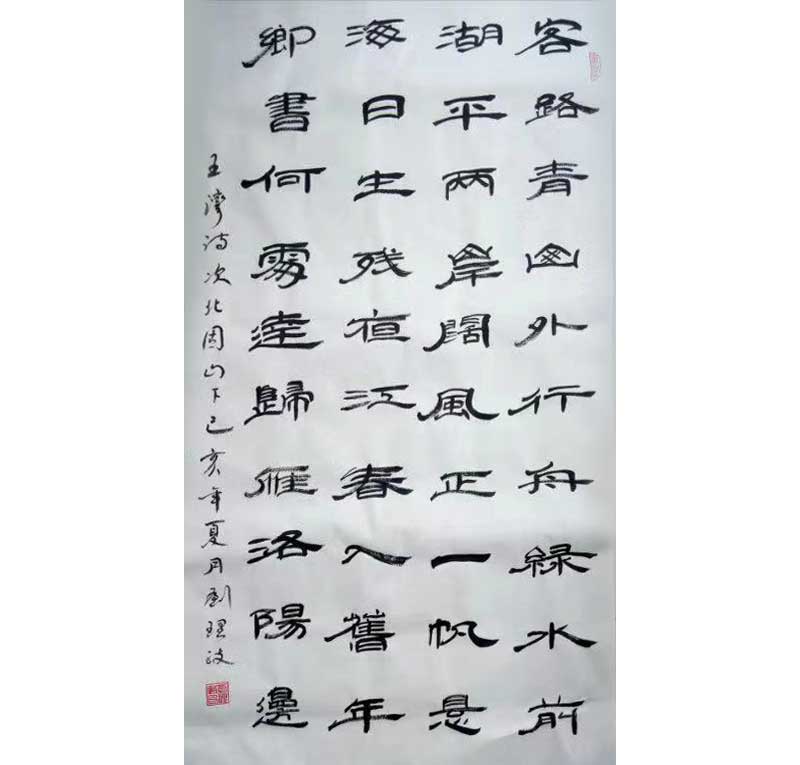 客路青山外行舟緑水前
湖平两岸闊風正一帆悬
海日生残夜江春入舊年
鄉書何處達歸雁洛陽邊
王灣诗次北固山下己亥年夏月劉理波